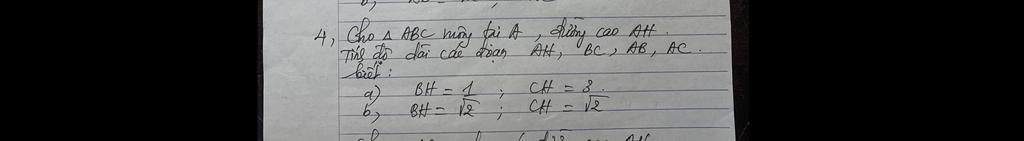 4, Cho △ ABC vuông tại A, đường cao AH.
Tính độ dài các đoạn AH, BC, AB, AC.
biết:
a) BH = 1 ; CH = 3.
b, BH = √2 ; CH = √2